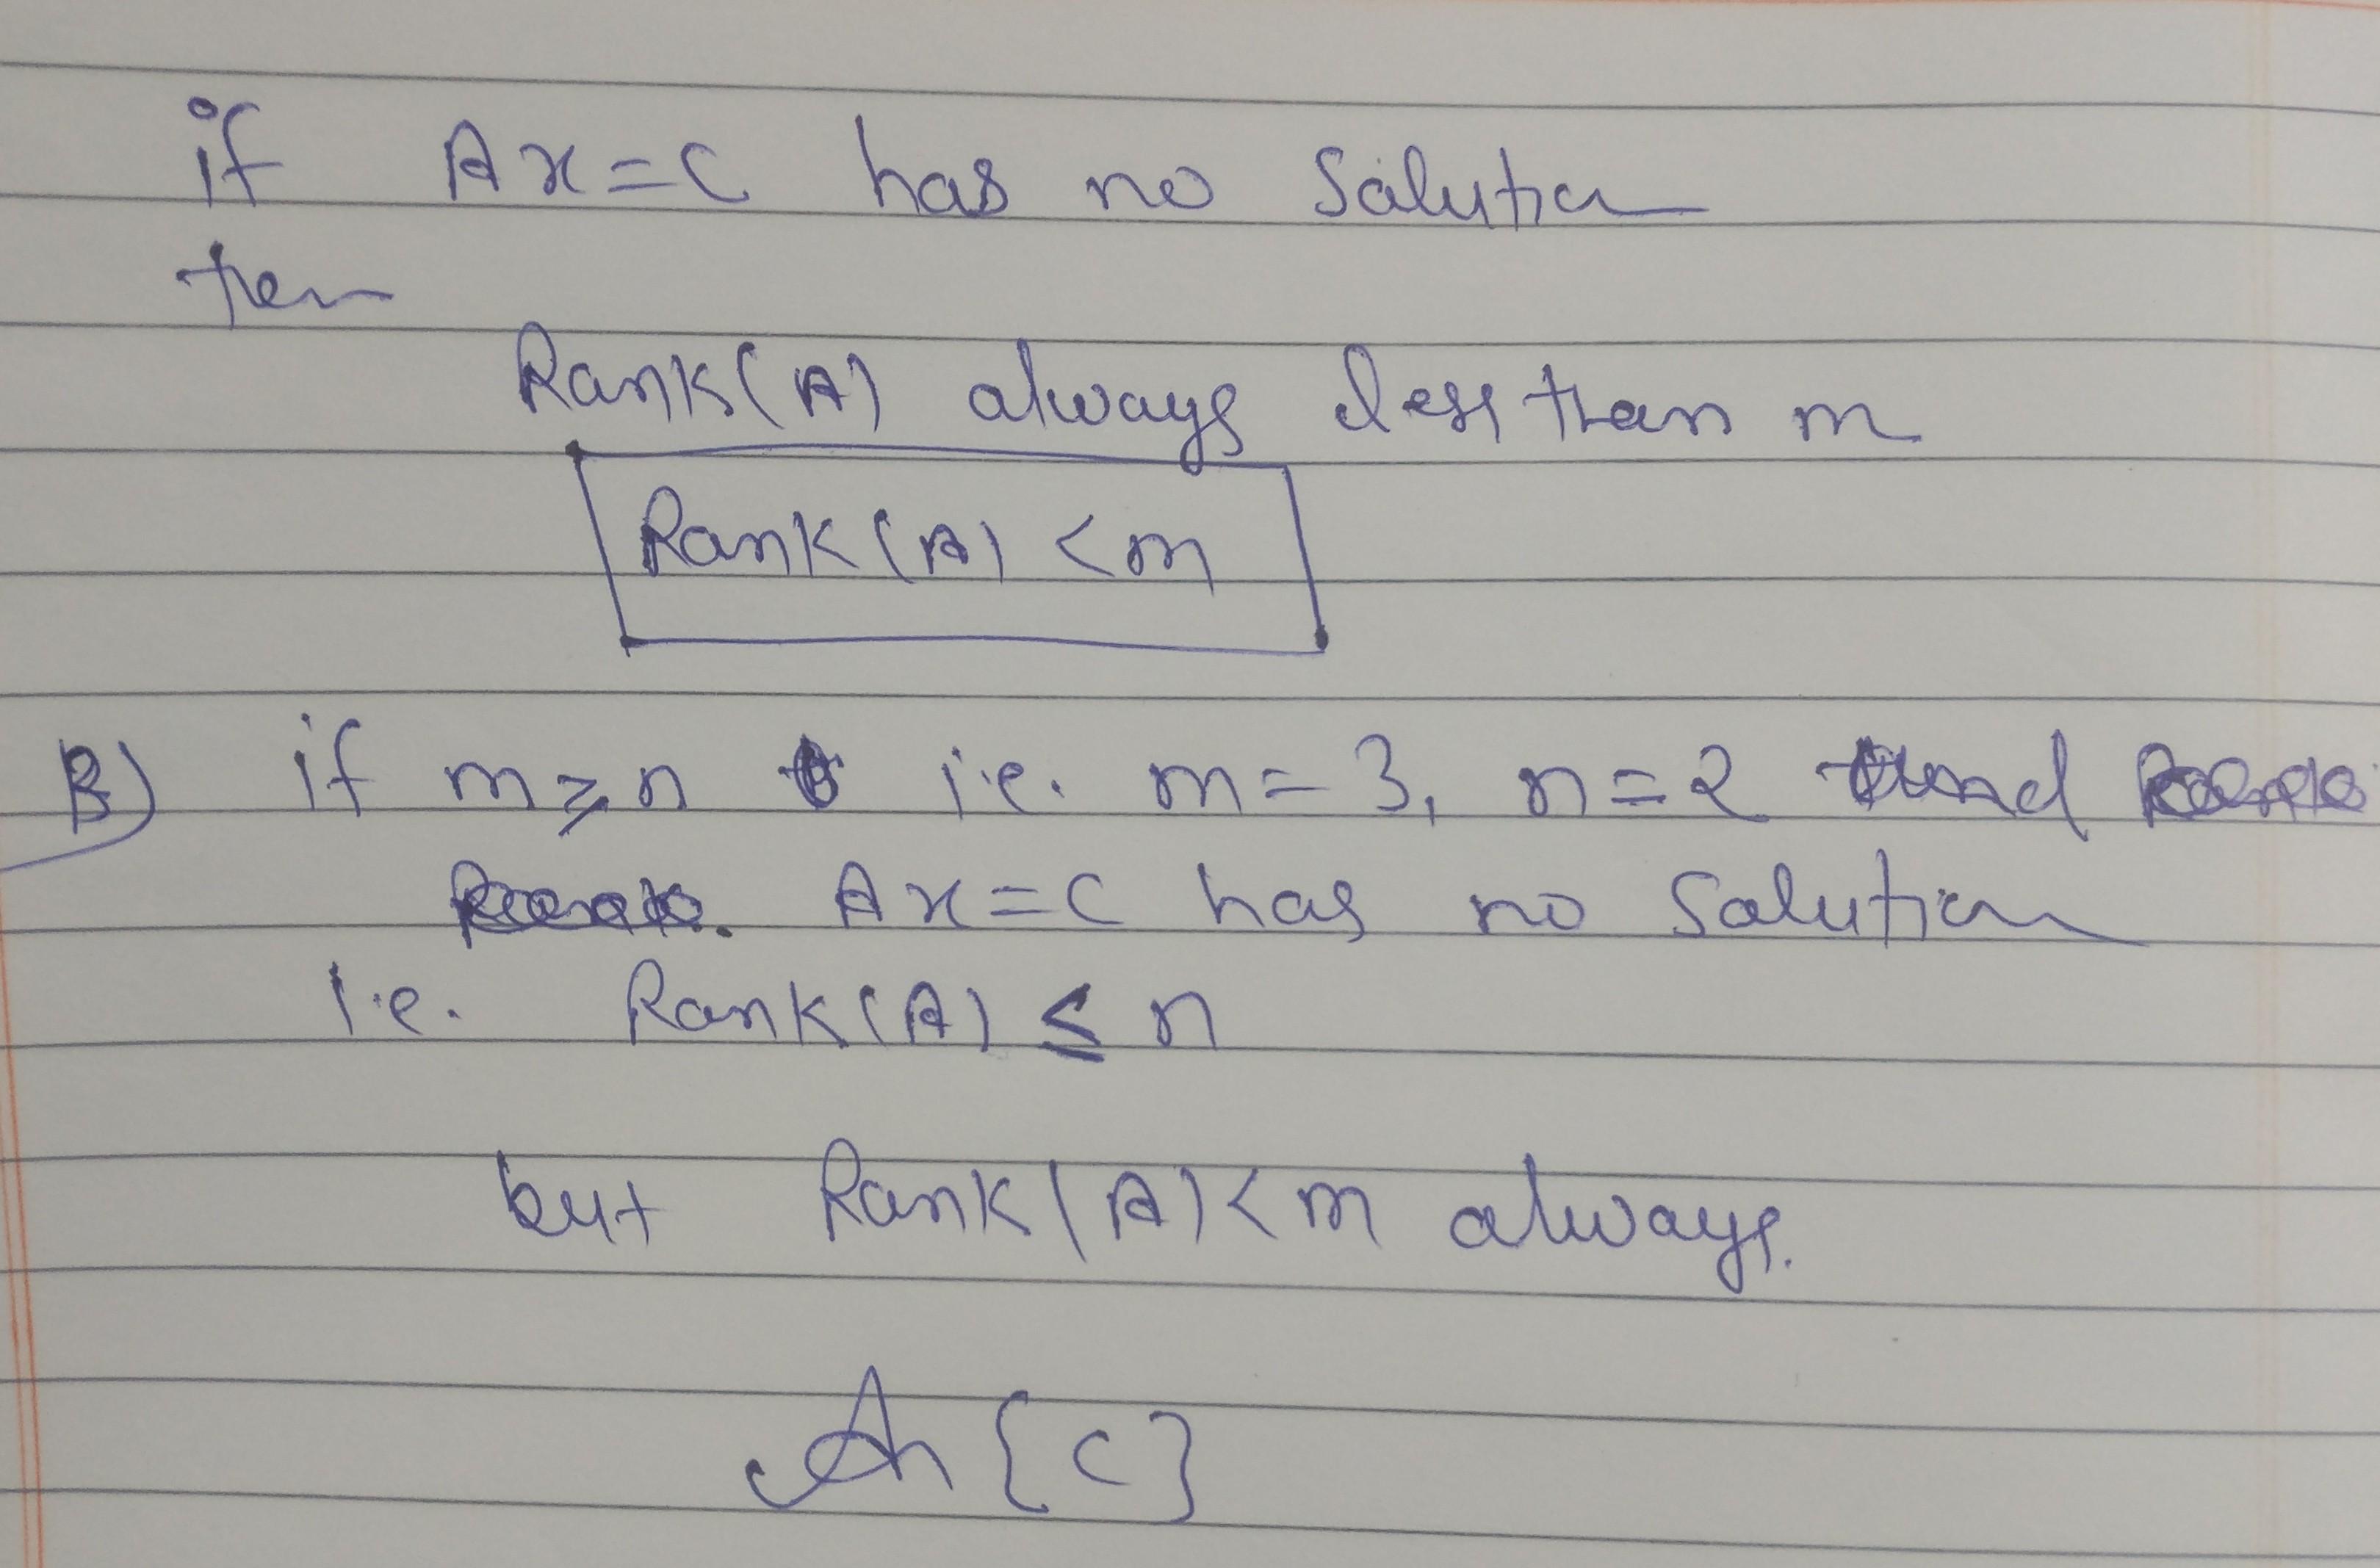 if Ax=C has no Solution
then
Rank(A) always less than m
Rank(A) < m
B) if m ≥ n i.e. m=3, n=2 and
Ax=C has no Solution
i.e. Rank(A) ≤ n
but Rank(A) < m always.
An {C}